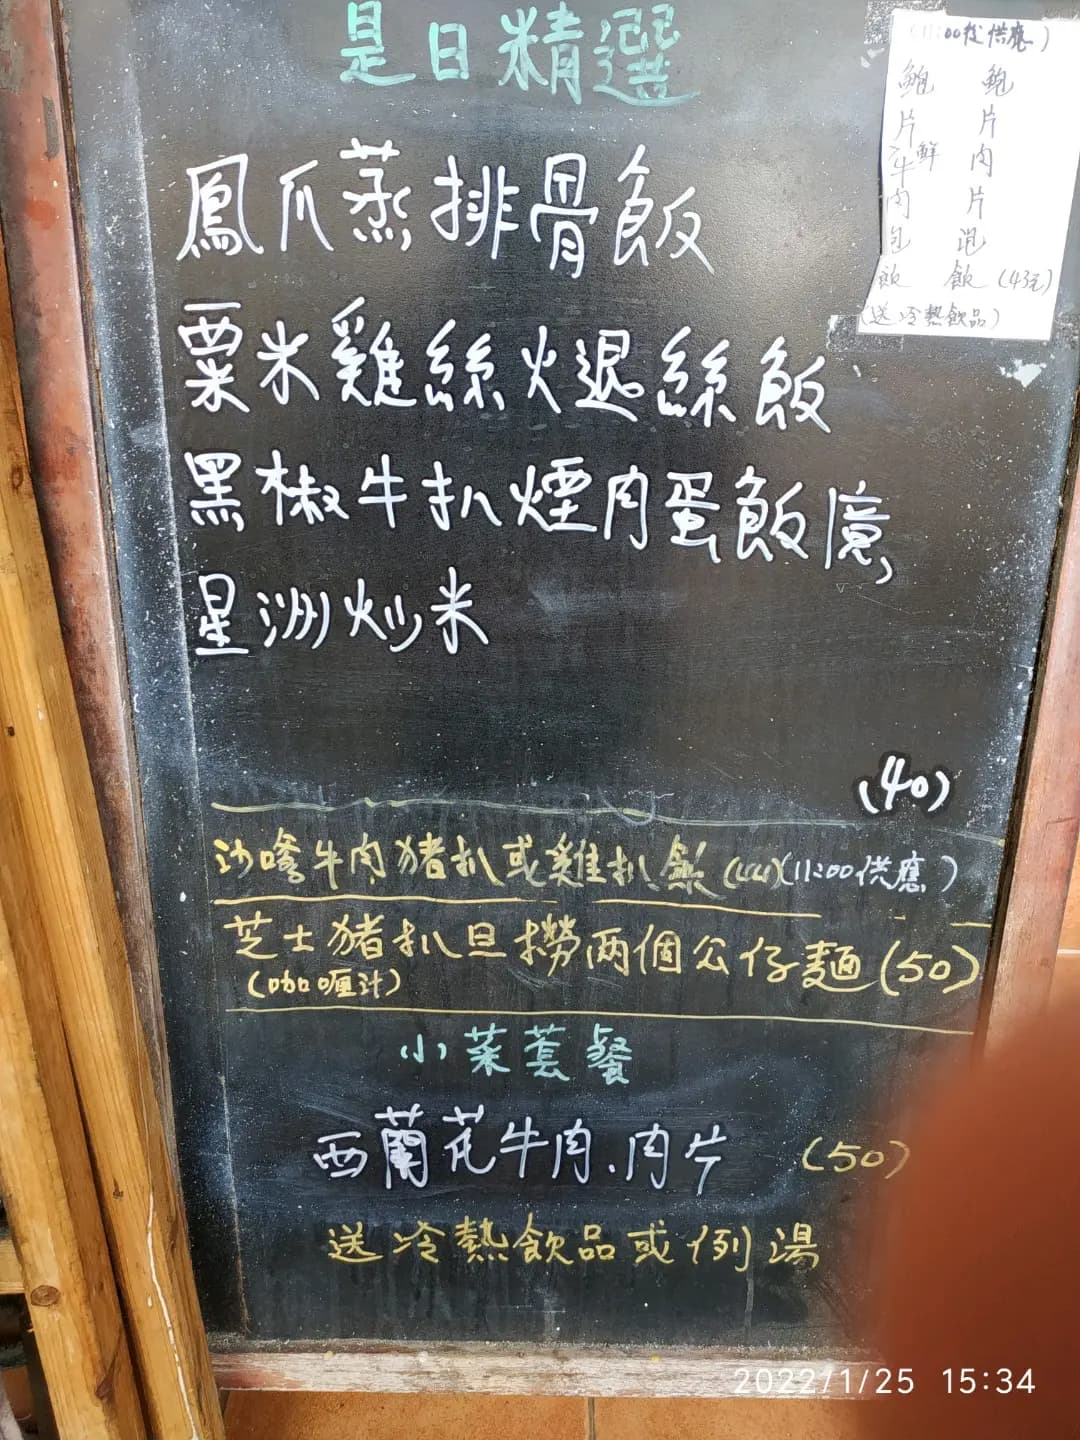 是日精選
鳳爪蒸排骨飯
粟米雞絲火退絲飯
黑椒牛扒煙肉蛋飯
星洲炒米
(40)
沙嗲牛肉猪扒或雞扒飯(44)(11:00供應)
芝士豬扒旦撈两個公仔麵(50)
(咖喱汁)
小菜套餐
西蘭花牛肉、肉片 (50)
送冷熱飲品或例湯
(11:00後供應)
鮑片鮮牛肉包飯
鮑片肉片泡飯(43元)
(送冷熱飲品)
2022/1/25 15:34